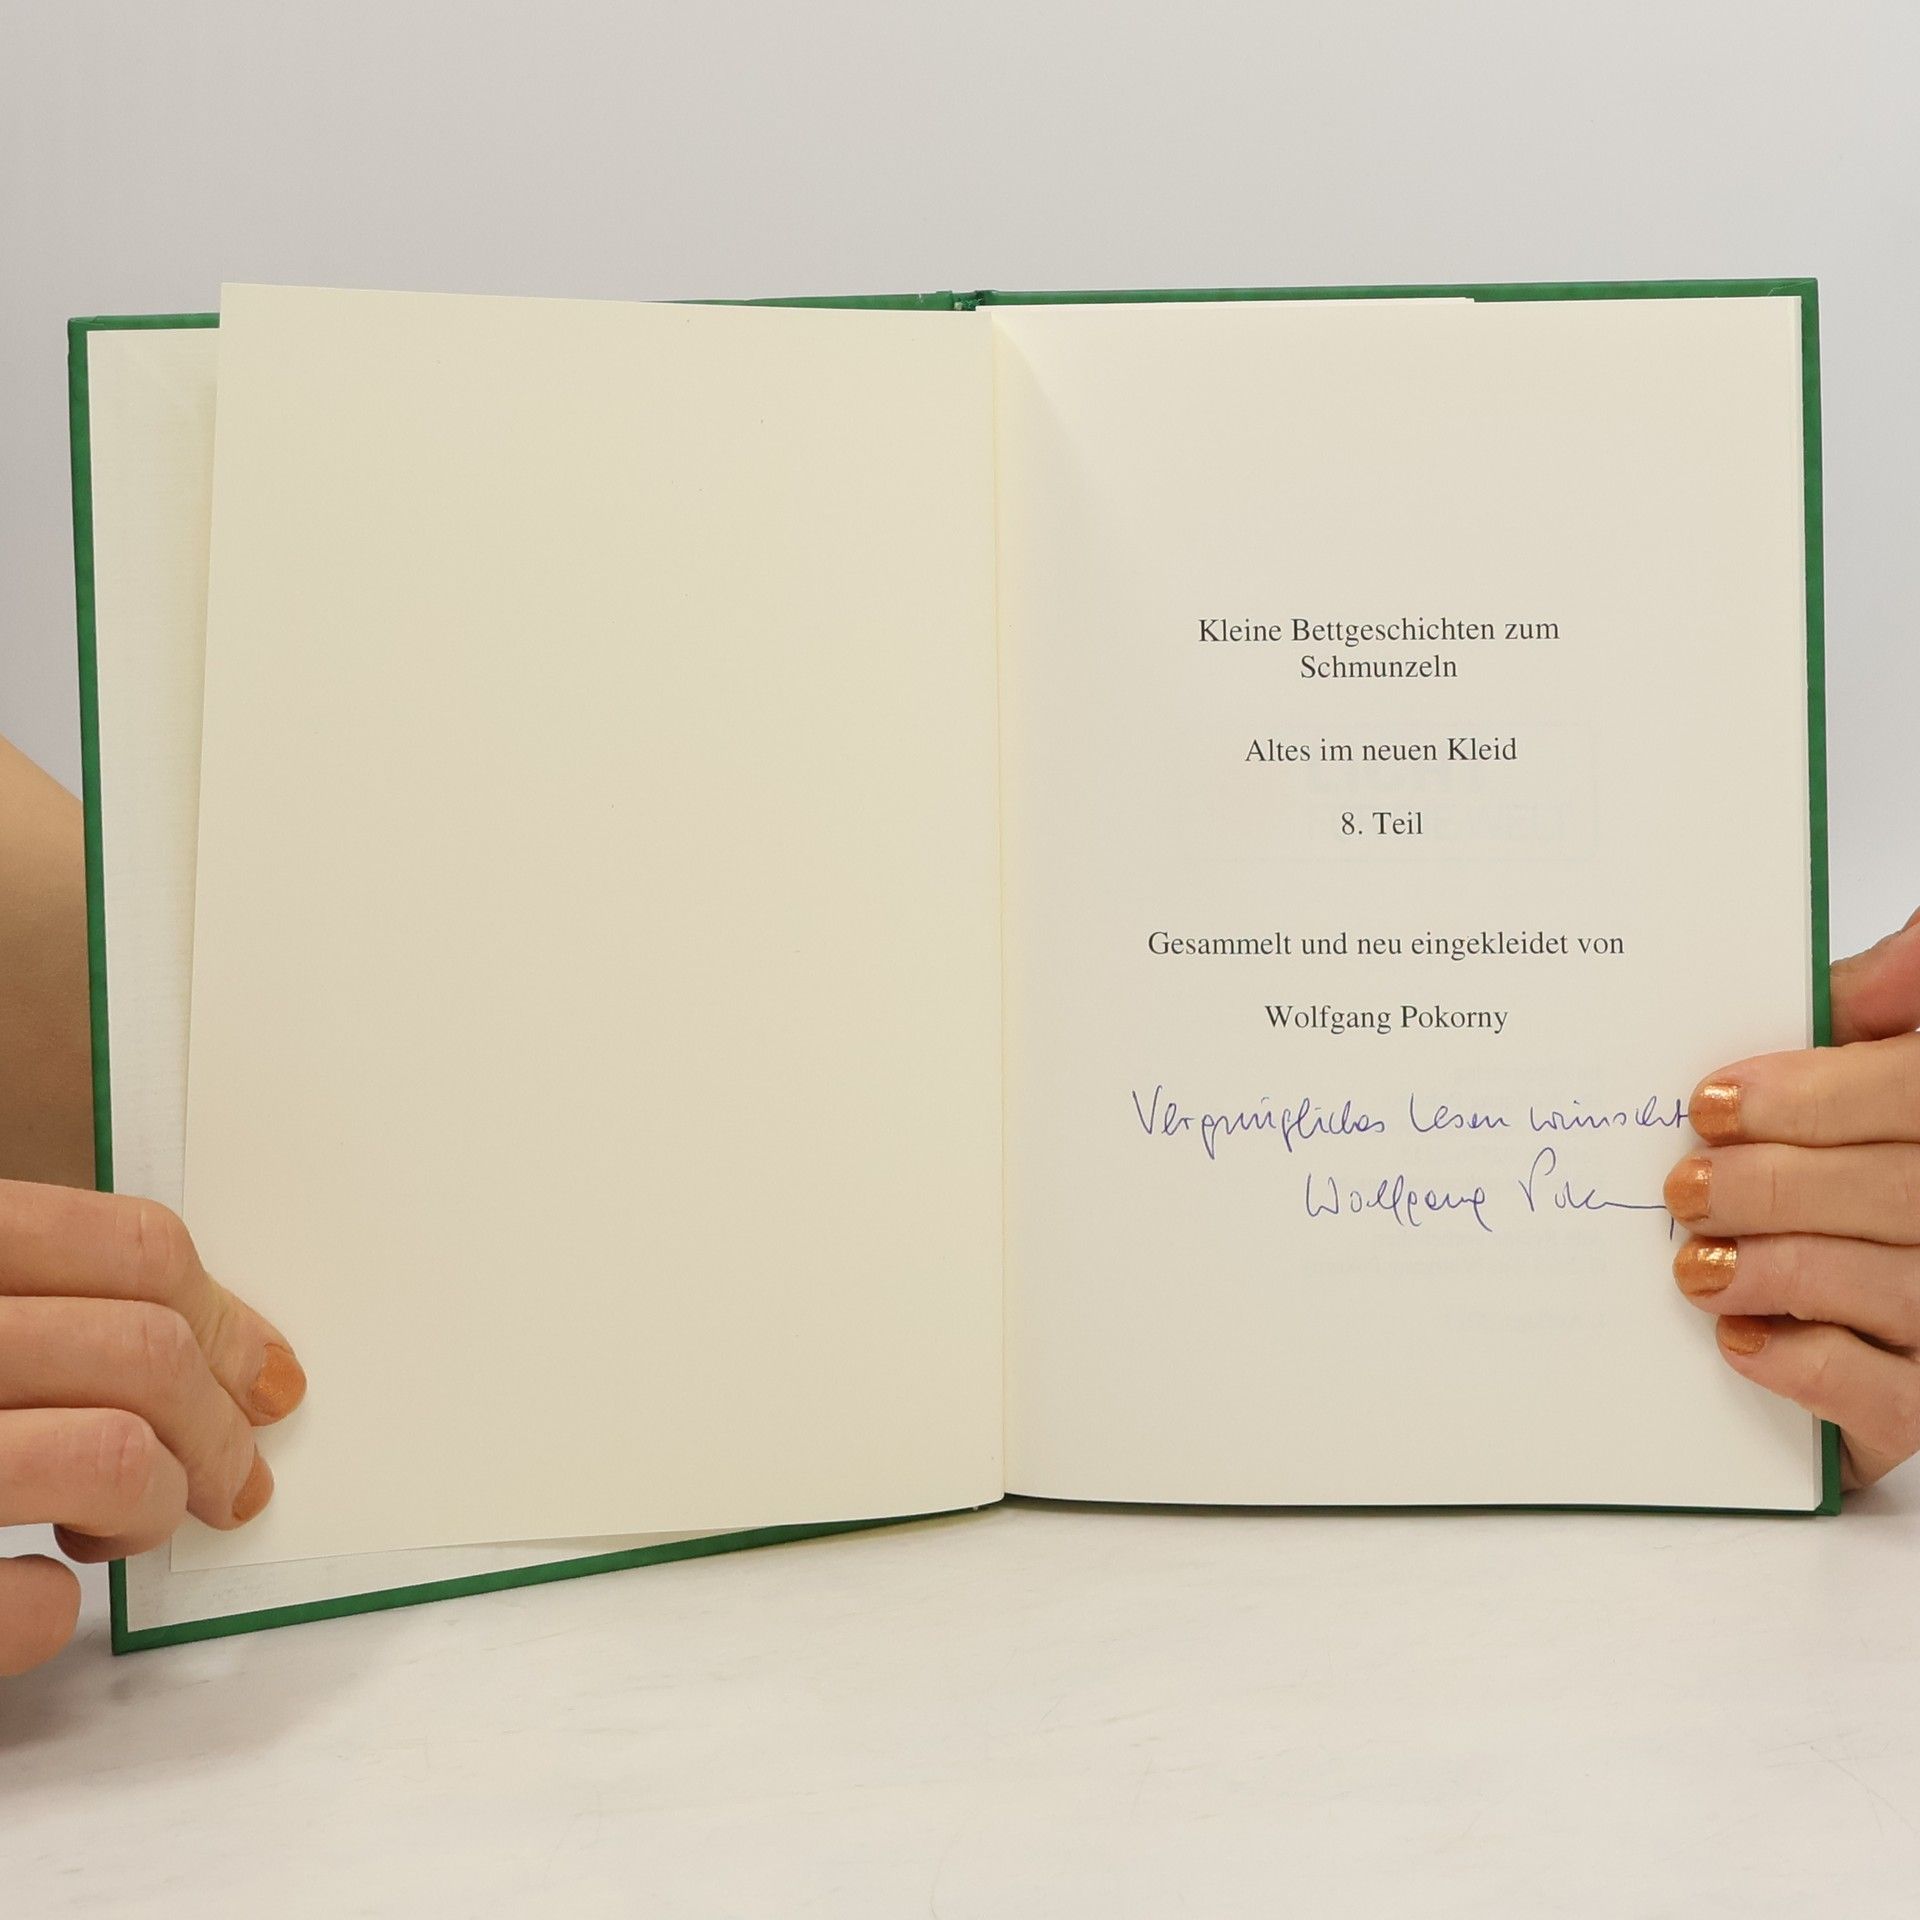 Kleine Bettgeschichten zum
Schmunzeln
Altes im neuen Kleid
8. Teil
Gesammelt und neu eingekleidet von
Wolfgang Pokorny
Vergnügliches Lesen wünscht
Wolfgang Pokorny